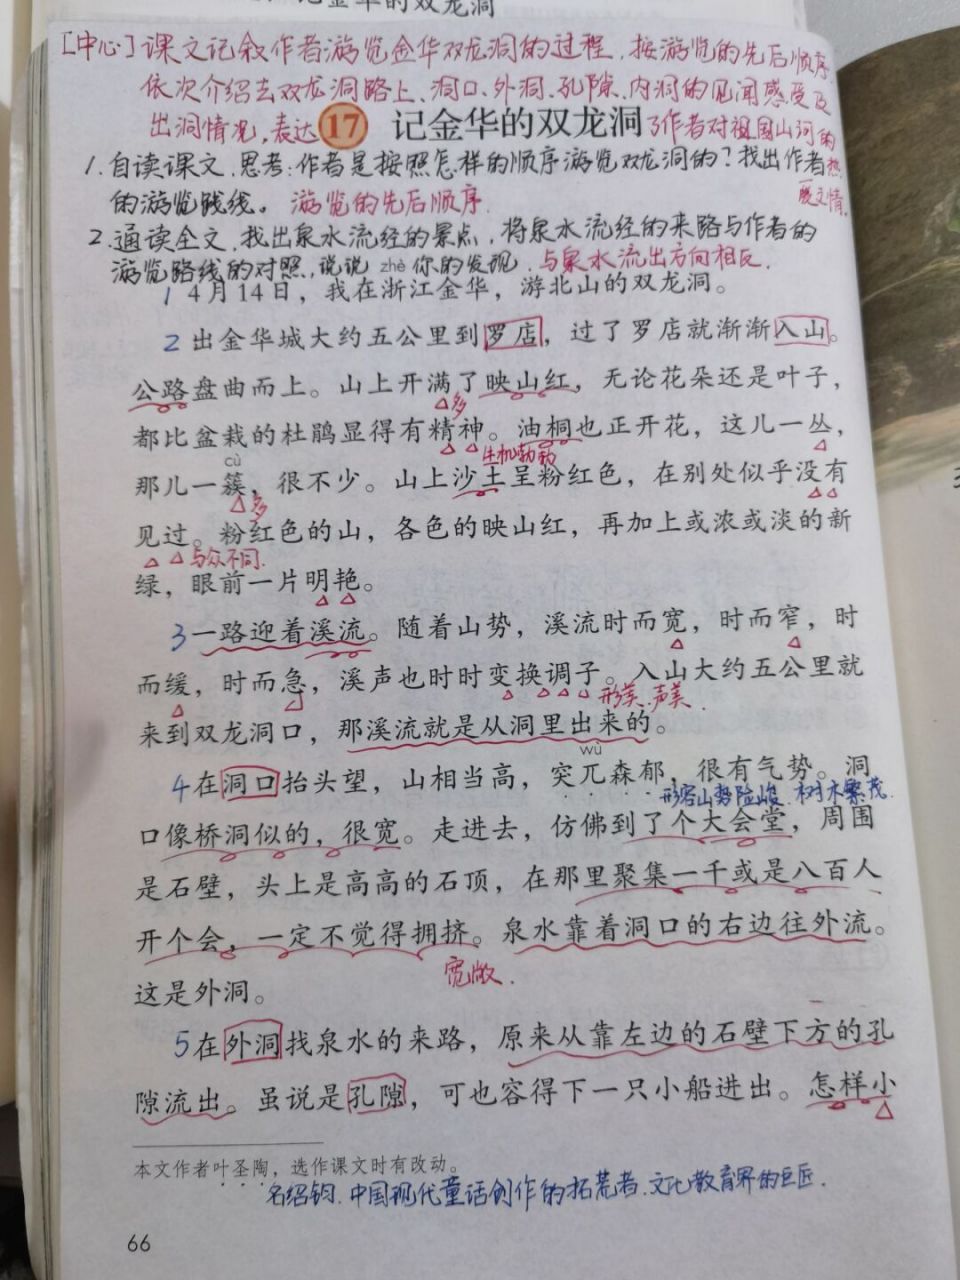 记金华的双龙洞
[中心]课文记叙作者游览金华双龙洞的过程，按游览的先后顺序
依次介绍去双龙洞路上、洞口、外洞、孔隙、内洞的见闻感受及
出洞情况，表达了作者对祖国山河的
热
爱之情。
17 记金华的双龙洞
1.自读课文，思考：作者是按照怎样的顺序游览双龙洞的？找出作者
的游览路线。 游览的先后顺序.
2.通读全文，找出泉水流经的景点，将泉水流经的来路与作者的
游览路线的对照，说说 zhè 你的发现. 与泉水流出方向相反.
1 4月14日，我在浙江金华，游北山的双龙洞。
2 出金华城大约五公里到罗店，过了罗店就渐渐入山。
公路盘曲而上。山上开满了映山红，无论花朵还是叶子，
多
都比盆栽的杜鹃显得有精神。油桐也正开花，这儿一丛，
生机勃勃
cù
那儿一簇，很不少。山上沙土呈粉红色，在别处似乎没有
多
见过。粉红色的山，各色的映山红，再加上或浓或淡的新
与众不同.
绿，眼前一片明艳。
3 一路迎着溪流。随着山势，溪流时而宽，时而窄，时
而缓，时而急，溪声也时时变换调子。入山大约五公里就
形美、声美.
来到双龙洞口，那溪流就是从洞里出来的。
wù
4 在洞口抬头望，山相当高，突兀森郁，很有气势。洞
形容山势险峻. 树木繁茂.
口像桥洞似的，很宽。走进去，仿佛到了个大会堂，周围
是石壁，头上是高高的石顶，在那里聚集一千或是八百人
开个会，一定不觉得拥挤。泉水靠着洞口的右边往外流。
宽敞.
这是外洞。
5 在外洞找泉水的来路，原来从靠左边的石壁下方的孔
隙流出。虽说是孔隙，可也容得下一只小船进出。怎样小
本文作者叶圣陶，选作课文时有改动。
名绍钧. 中国现代童话创作的拓荒者. 文化教育界的巨匠.
66